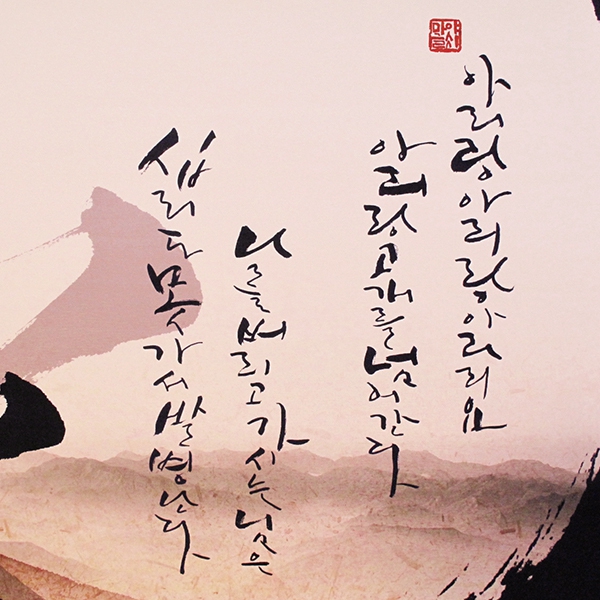 아리랑아리랑아라리요
아리랑고개를넘어간다
나를버리고가시는님은
십리도못가서발병난다